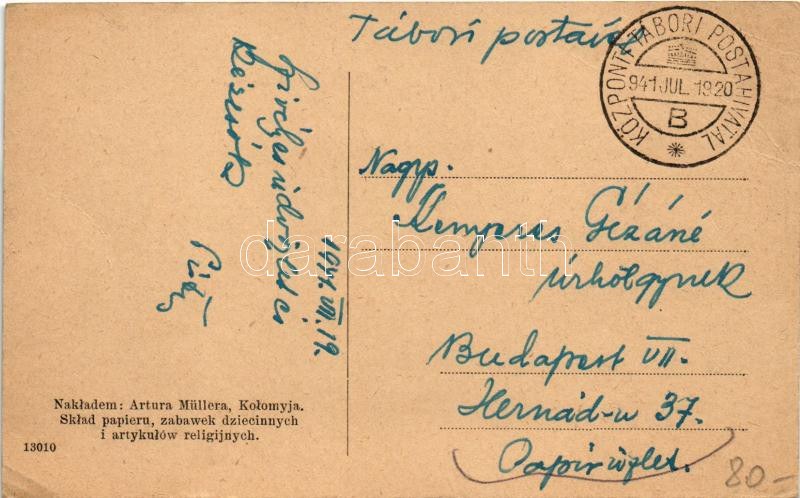 Tábori postával
KÖZPONTI TÁBORI POSTAHIVATAL
941 JUL. 19 20
B
Nagys.
Kemperes Gézáné
úrhölgynek
Budapest VII.
Hernád-u 37.
Papírüzlet.
1941. VII. 19.
Szívélyes üdvözlet és
Nakładem: Artura Müllera, Kołomyja.
Skład papieru, zabawek dziecinnych
i artykułów religijnych.
13010
80-
darabanth